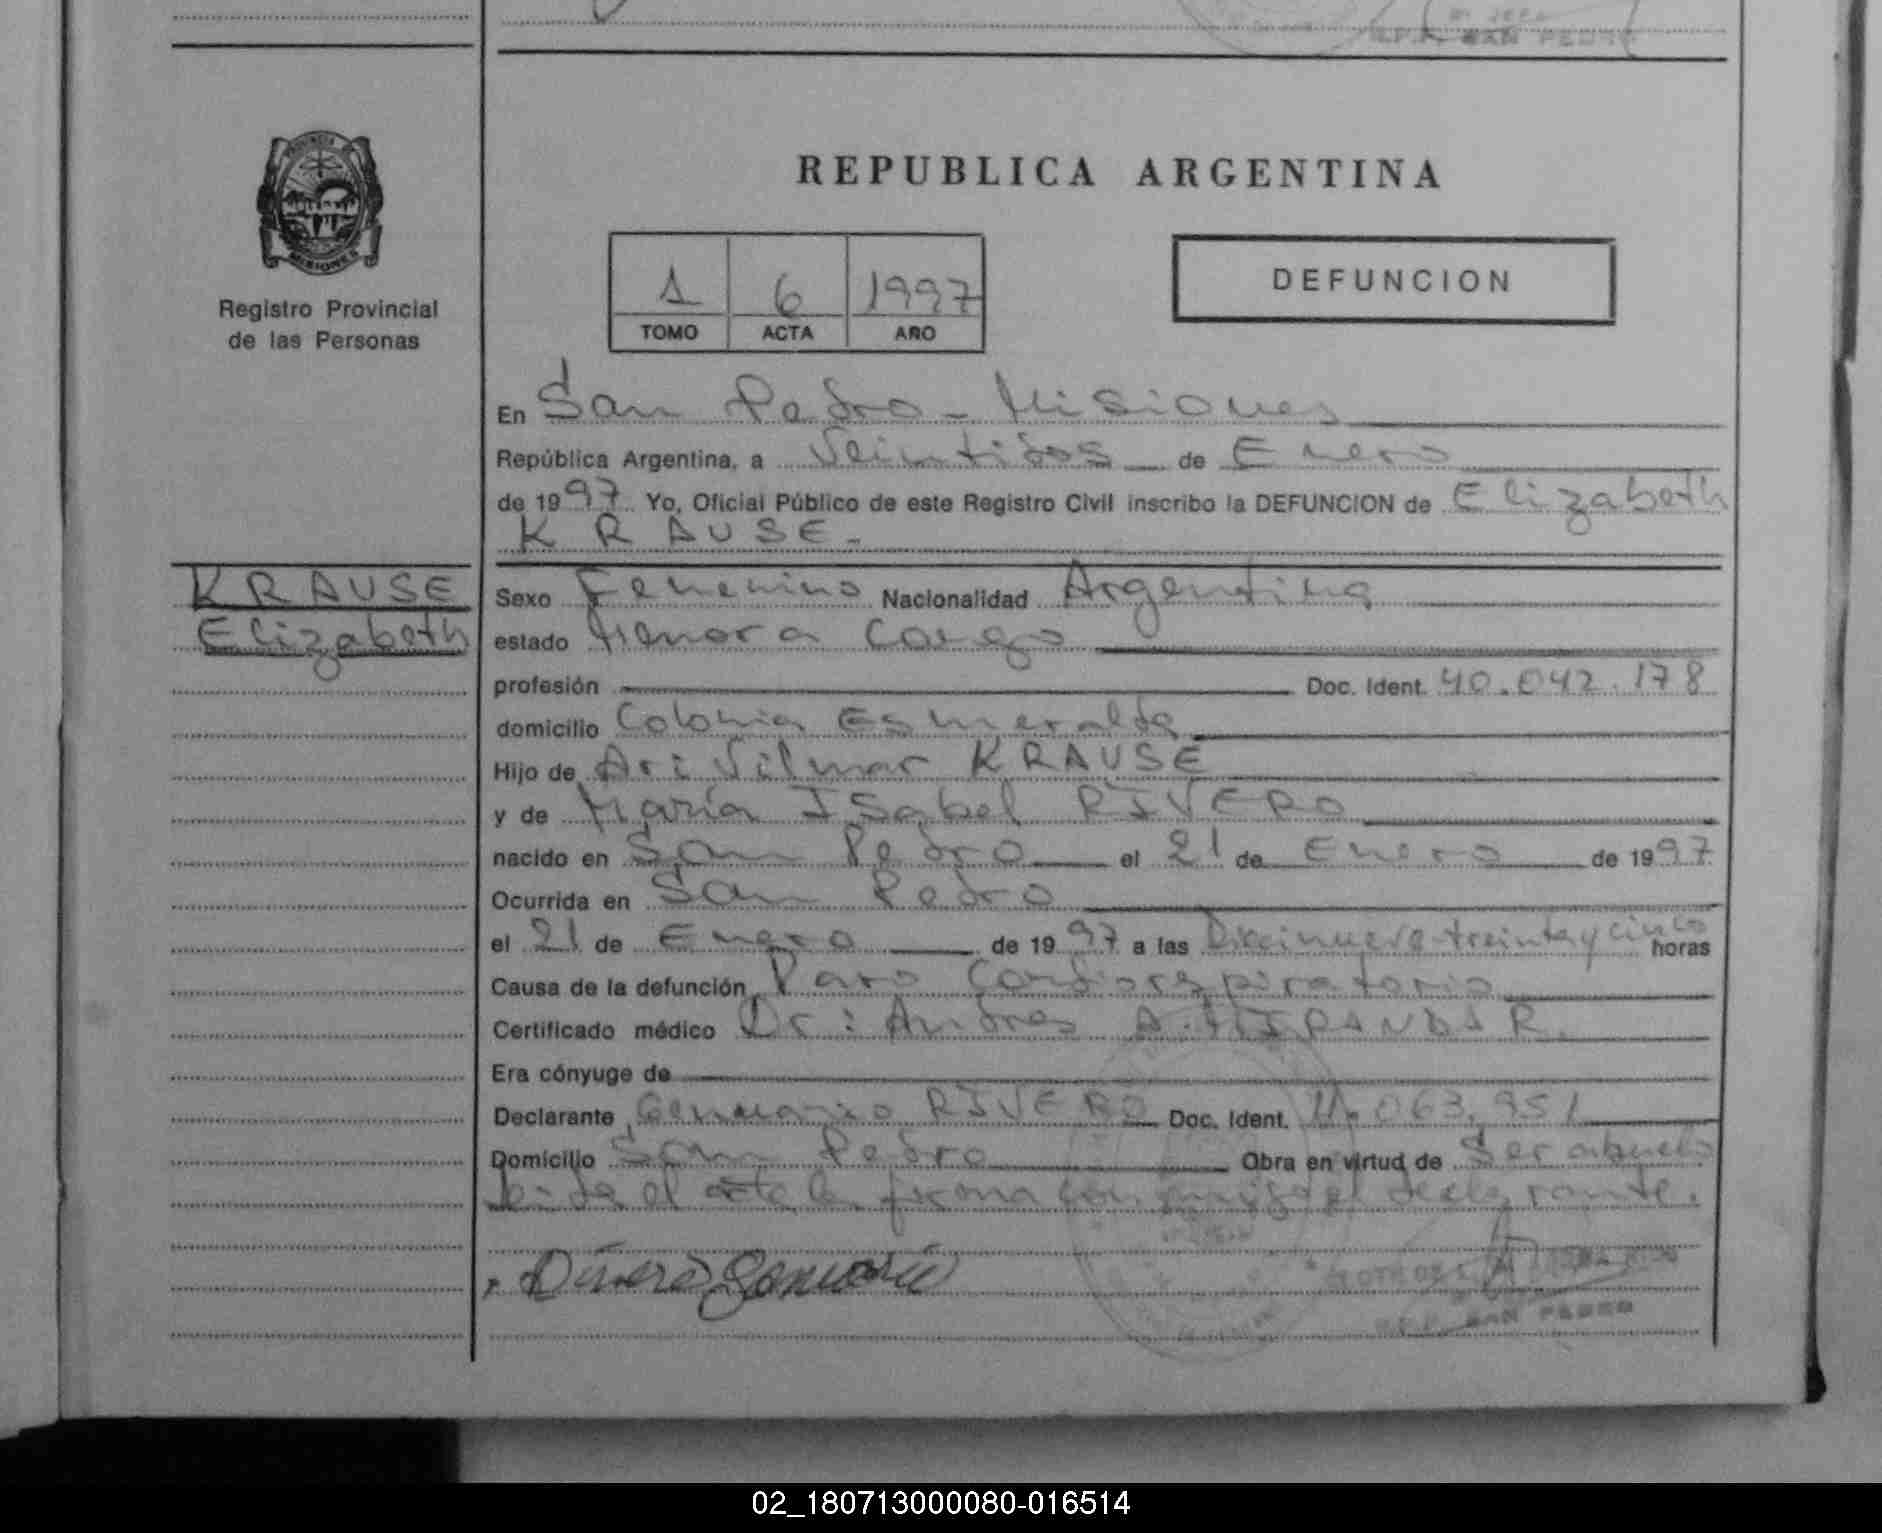 S.P.P. SAN PEDRO
PROVINCIA
MISIONES
Registro Provincial
de las Personas
REPUBLICA ARGENTINA
1 6 1997
TOMO ACTA AÑO
DEFUNCION
En San Pedro - Misiones
República Argentina, a Veintidos de Enero
de 1997 Yo, Oficial Público de este Registro Civil inscribo la DEFUNCION de Elizabeth
KRAUSE.-
KRAUSE
Elizabeth
Sexo Femenino Nacionalidad Argentina
estado Menora Cargo
profesión Doc. Ident. 40.042.178
domicilio Colonia Esmeralda
Hijo de Ari Vilmar KRAUSE
y de María Isabel RIVERO
nacido en San Pedro el 21 de Enero de 1997
Ocurrida en San Pedro
el 21 de Enero de 1997 a las Diecinueve treinta y cinco horas
Causa de la defunción Paro Cardiorespiratorio
Certificado médico Dr: Andres A. MIRANDA R.
Era cónyuge de
Declarante Genuario RIVERO Doc. Ident. 11.063.951
Domicilio San Pedro Obra en virtud de Ser abuelo
Leida el acta la firma conmigo el declarante.
Rivero Genuario
SAN PEDRO
02_180713000080-016514